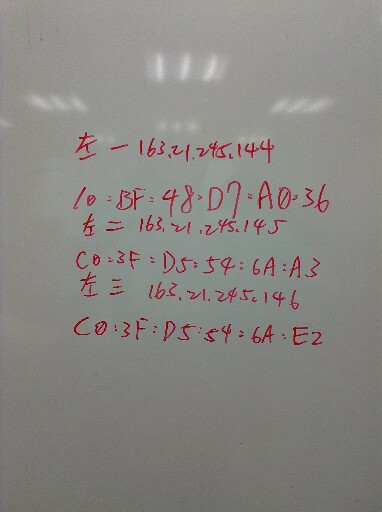 左一 163.21.245.144
10:BF:48:D7:A0:36
左二 163.21.245.145
C0:3F:D5:54:6A:A3
左三 163.21.245.146
C0:3F:D5:54:6A:E2